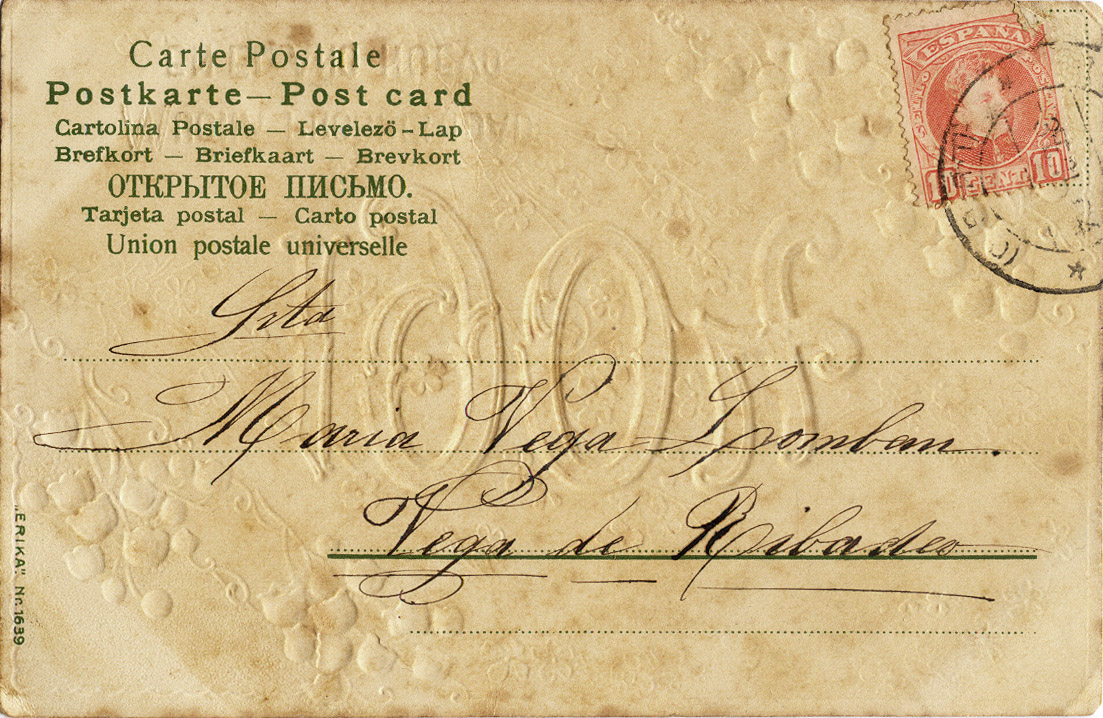 Carte Postale
Postkarte — Post card
Cartolina Postale — Levelező-Lap
Brefkort — Briefkaart — Brevkort
ОТКРЫТОЕ ПИСЬМО.
Tarjeta postal — Carto postal
Union postale universelle
ESPAÑA
10 CENT 10
Srta
Maria Vega
Vega de Ribadeo
"ERIKA". Nr. 1639